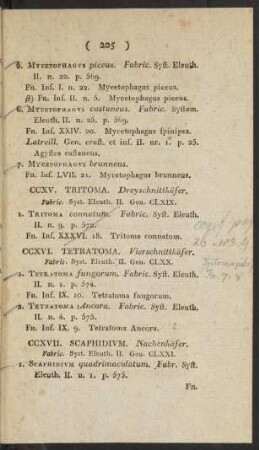 ( 205 )
5. MYCETOPHAGVS piceus. Fabric. Syst. Eleuth.
II. n. 22. p. 569.
Fn. Inf. I. n. 22. Mycetophagus piceus.
β) Fn. Inf. II. n. 5. Mycetophagus piceus.
6. MYCETOPHAGVS castaneus. Fabric. System.
Eleuth. II. n. 25. p. 569.
Fn. Inf. XXIV. 20. Mycetophagus spinipes.
Latreill. Gen. crust. et inf. II. ur. 1. p. 25.
Agyrtes castaneus.
7. MYCETOPHAGVS brunneus.
Fn. Inf. LVII. 21. Mycetophagus brunneus.
CCXV. TRITOMA. Dreyschnittkäfer.
Fabric. Syst. Eleuth. II. Gen. CLXIX.
1. TRITOMA connatum. Fabric. Syst. Eleuth.
II. n. 9. p. 572.
Fn. Inf. XXXVI. 18. Tritoma connatum.
CCXVI. TETRATOMA. Vierschnittkäfer.
Fabric. Syst. Eleuth. II. Gen. CLXX.
1. TETRATOMA fungorum. Fabric. Syst. Eleuth.
II. n. 1. p. 574.
Fn. Inf. IX. 10. Tetratoma fungorum.
2. TETRATOMA Ancora. Fabric. Syst. Eleuth.
II. n. 4. p. 575.
Fn. Inf. IX. 9. Tetratoma Ancora.
CCXVII. SCAPHIDIVM. Nachenkäfer.
Fabric. Syst. Eleuth. II. Gen. CLXXI.
1. SCAPHIDIVM quadrimaculatum. Fabr. Syst.
Eleuth. II. n. 1. p. 575.
Fn.